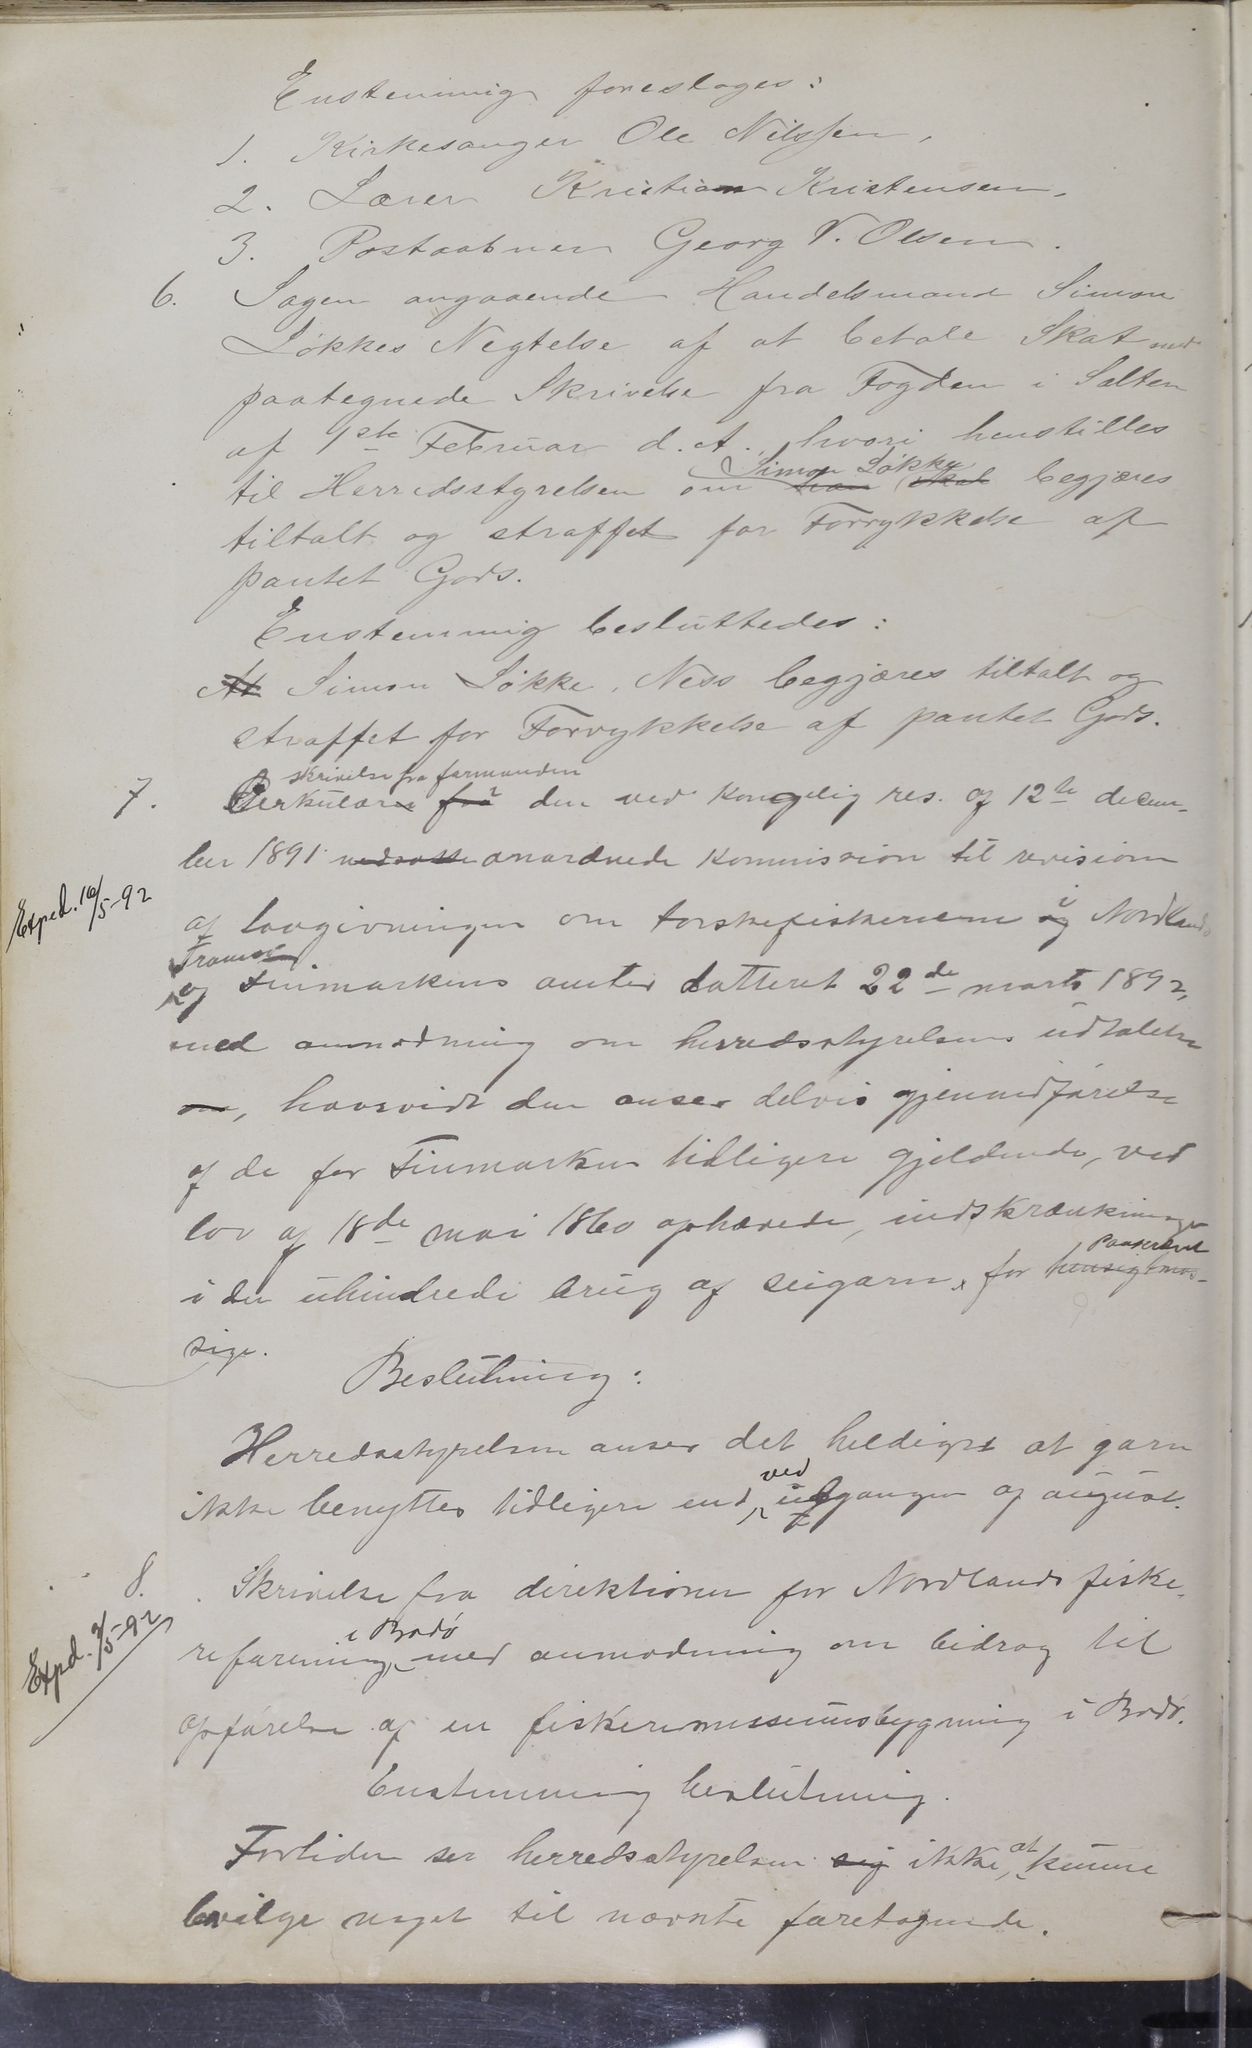 Enstemmig foreslages:
1. Kirkesanger Ole Nilssen,
2. Lærer Kristian Kristensen,
3. Postaabner Georg V. Olsen.
6. Sagen angaaende Handelsmand Simon
Løkkes Negtelse af at betale Skat med
paategnede Skrivelse fra Fogden i Salten
af 1ste Februar d. A. hvori henstilles
til Herredsstyrelsen om Simon Løkke begjæres
tiltalt og straffet for Forrykkelse af
pantet Gods.
Enstemmig besluttedes:
At Simon Løkke, Ness begjæres tiltalt og
straffet for Forrykkelse af pantet Gods.
skrivelse fra formanden
7. Cirkulære fra i den ved kongelig res. af 12te decem-
ber 1891 nedsatte anordnede kommission til revision
Exped. 16/5-92
af lovgivningen om torskefiskerierne i Nordlands
Tromsø
og Finmarkens amter datteret 22de marts 1892,
med anmodning om herredsstyrelsens udtalelse
om, hvorvidt den anser delvis gjenindførelse
af de for Finmarken tidligere gjeldende, ved
lov af 18de mai 1860 ophævede, indskrænkninger
paakrævet
i den uhindrede brug af seigarn, for hensigtmæs-
sige.
Beslutning:
Herredsstyrelsen anser det heldigst at garn
ikke benyttes tidligere end ved udgangen af august.
8. Skrivelse fra direktionen for Nordlands fiske-
Expd. 7/5-92
i Bodø
riforening, med anmodning om bidrag til
opførelse af en fiskerimuseumsbygning i Bodø.
Enstemmig beslutning.
Fortiden ser herredsstyrelsen sig ikke at kunne
bevilge noget til nævnte foretagende.